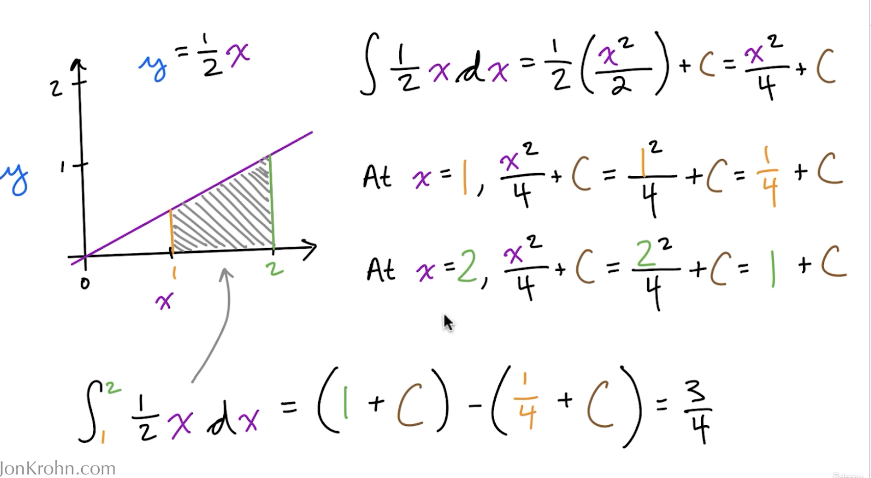 y = 1/2 x
∫ 1/2 x dx = 1/2 (x²/2) + C = x²/4 + C
2
1
y
0
1
2
x
At x = 1, x²/4 + C = 1²/4 + C = 1/4 + C
At x = 2, x²/4 + C = 2²/4 + C = 1 + C
∫₁² 1/2 x dx = (1 + C) - (1/4 + C) = 3/4
JonKrohn.com